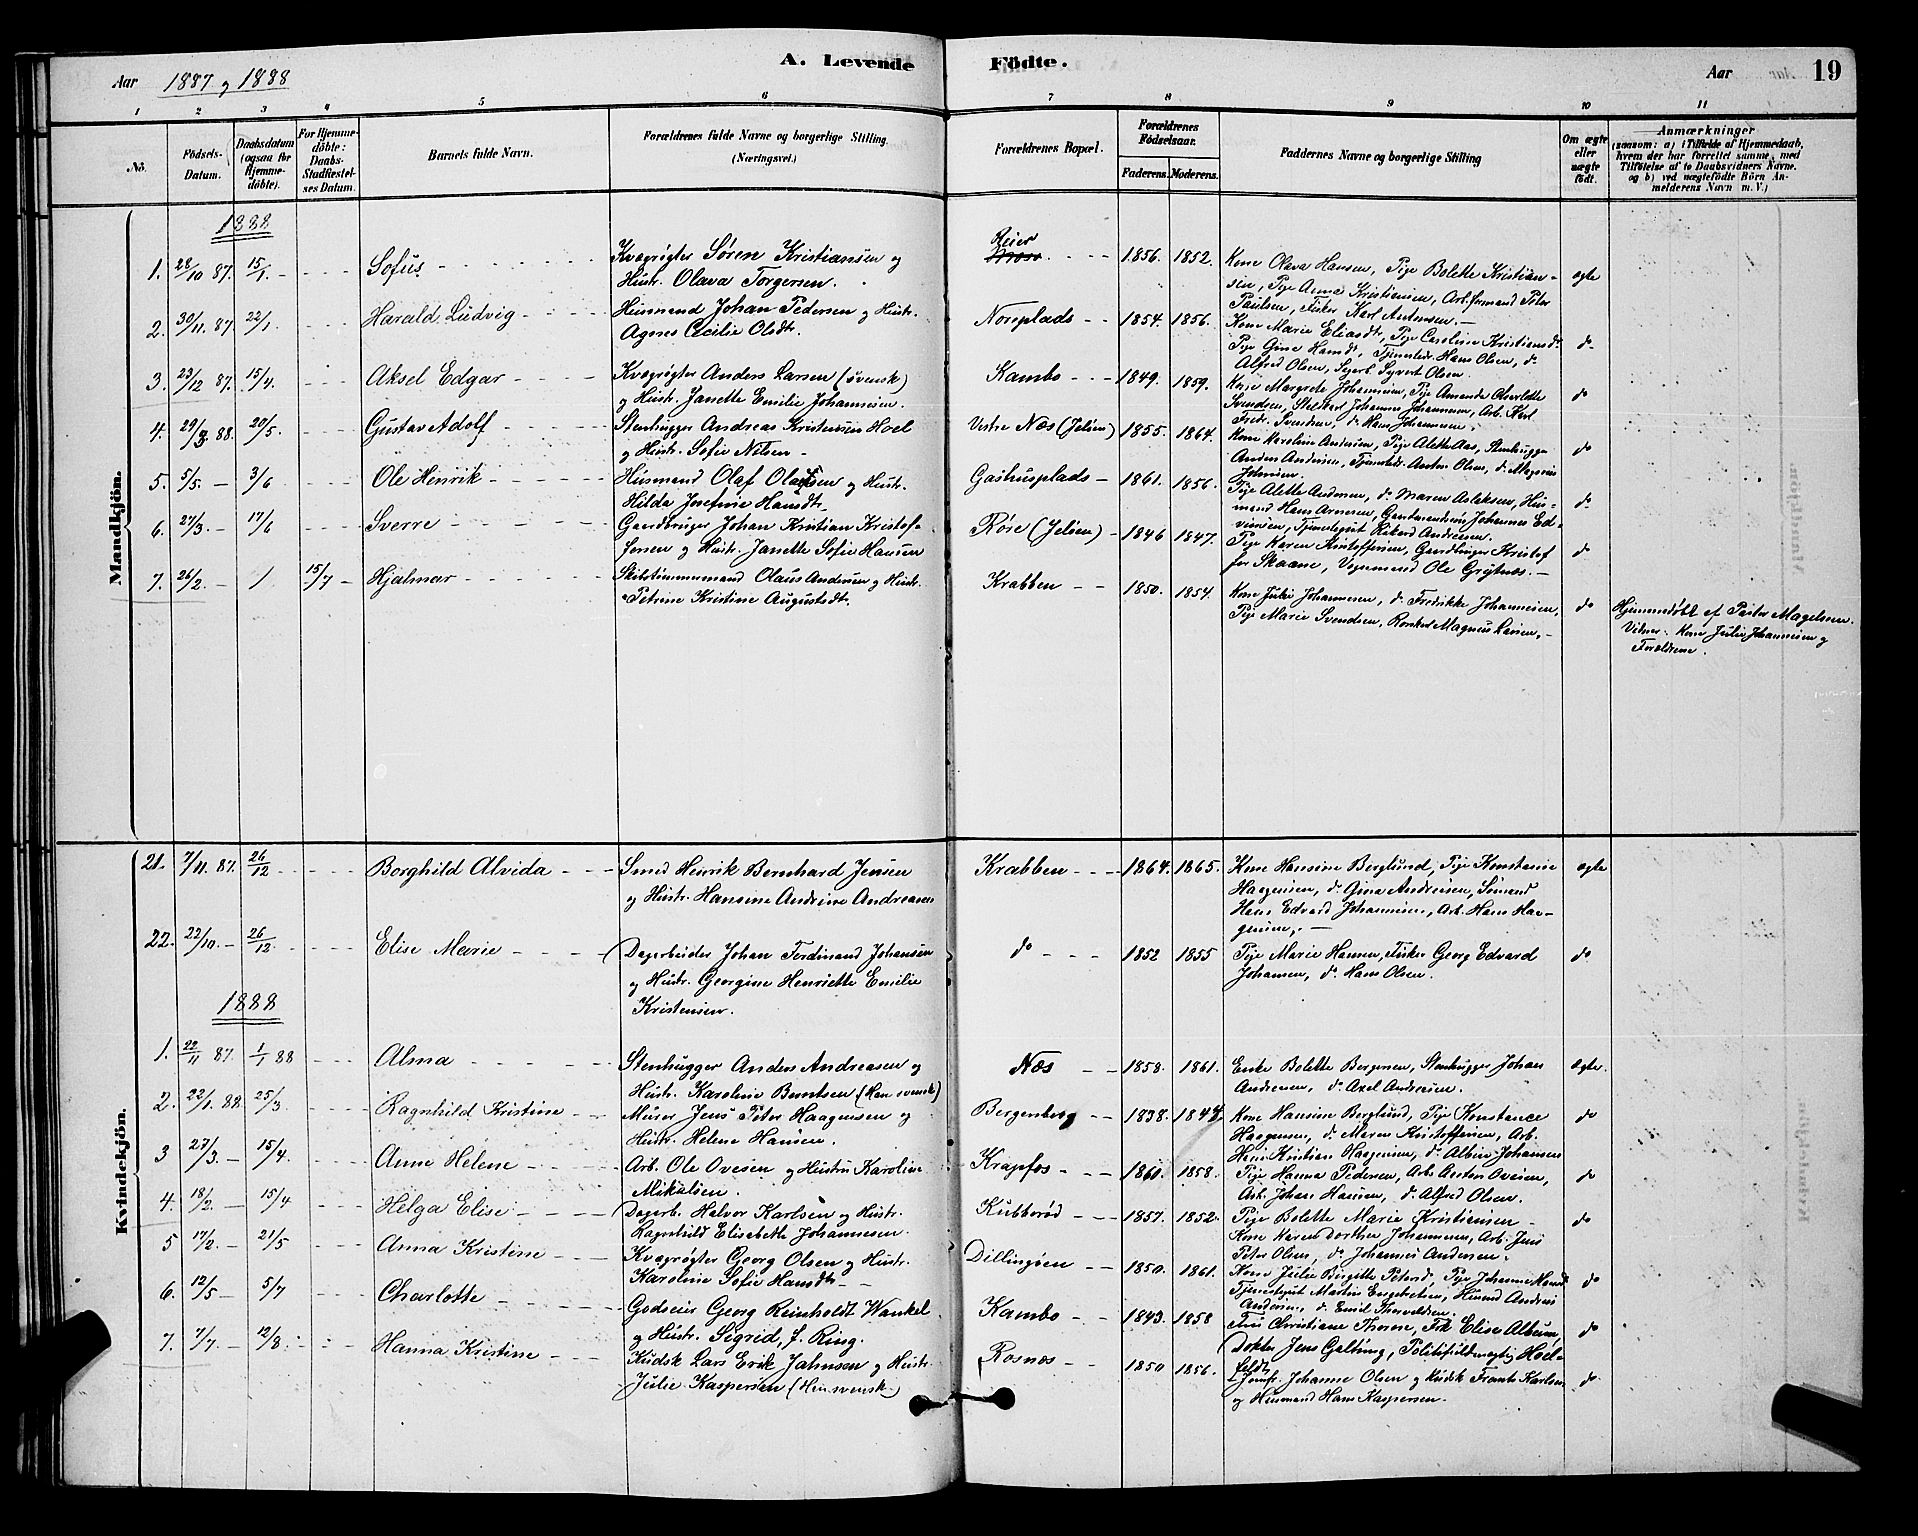 Aar 1887 og 1888 A. Levende Födte. Aar 19
1 2 3 4 5 6 7 8 9 10 11
No. Födsels-Datum. Daabsdatum (ogsaa for Hjemme-döbte). For Hjemme-döbte: Daabs-Stadfæstel-ses Datum. Barnets fulde Navn. Forældrenes fulde Navne og borgerlige Stilling. (Næringsvei.) Forældrenes Bopæl. Forældrenes Födselsaar. Faderens. Moderens. Faddernes Navne og borgerlige Stilling Om ægte eller uægte födt. Anmærkninger (saasom: a) i Tilfælde af Hjemmedaab, hvem der har forrettet samme, med Tilföielse af to Daabsvidners Navne, og b) ved uægtefödte Börn An-melderens Navn m. V.)
Mandkjön.
1888
1. 28/10 87. 15/1 - Sofus Kvægrøgter Søren Kristiansen og
Hustr. Olava Torgersen. Reier 1856. 1852. Kone Olava Hansen, Pige Bolette Kristian-
sen, Pige Anna Kristiansen, Arb.formand Peter
Paulsen, Fisker Karl Antonsen. - ægte
2. 30/11. 87. 22/1. Harald Ludvig Husmand Johan Pedersen og Hustr.
Agnes Cecilie Olsdtr. Noreplads 1854. 1856. Kone Marie Eliasdtr, Pige Caroline Kristiansdtr.
Pige Gine Hansdtr, Tjenestedr. Hans Olsen, do
Alfred Olsen, Syvert Olsen. do
3. 23/12 87. 15/4. Aksel Edgar Kvægrøgter Anders Larsen (svensk)
og Hustr. Janette Emilie Johannesen. Kambo 1849. 1859. Kone Margrete Johannesen, Pige Amanda Charlotte
Svendsen, Johannes Johannesen, Arb. Karl
Fredr. Svendsen, do Hans Johannesen. do
4. 29/3 88. 20/5. Gustav Adolf Stenhugger Andreas Kristensen Hoel
og Hustr. Sofie Nilsen - Vestre Næs (Jeløen) 1855. 1864. Kone Karoline Andersen, Pige Alette Aas, Stenhugger
Anders Andersen, Tjenestedr. Anton Olsen, do Magnus
Johnsen. do
5. 5/5 - 3/6 Ole Henrik Husmand Olaf Olafsen og Hustr.
Hilda Josefine Hansdtr. Gashusplads 1861. 1856. Pige Alette Andersen, do Maren Aslaksen, Hus-
mand Hans Arnesen, Gaardmandssøn Johannes Ed-
vinsen, Tjenestegut Rikard Andresen. do
6. 27/3. - 17/6 Sverre Gaardbruger Johan Kristian Kristof-
fersen og Hustr. Janette Sofie Hansen Røre (Jeløen) 1846 1847. Pige Karen Kristoffersen, Gaardbruger Kristof
fer Skaane, Vognmand Ole Grytnæs. - do
7. 26/2. - / 15/7 - Hjalmar Skibstømmermand Olaus Andersen og Hustr.
Petrine Kristine Augustsdtr. Krabben 1850. 1854. Kone Julie Johannesen, do Fredrikke Johannesen,
Pige Marie Svendsen, Magnus Larsen. - do Hjemmedøbt af Pastor Magelssen.
Vidner: Kone Julie Johannesen og
Forældrene.
Kvindekjön.
21. 7/11. 87. 26/12 Borghild Alvida Smed Henrik Bernhard Jensen
og Hustr. Hansine Andrine Andreasen Krabben 1864. 1865. Kone Hansine Berglund, Pige Konstanse
Haagensen, do Gina Andreasen, Sømand
Hans Edvard Johannesen, Arb. Hans Haa-
gensen. - ægte
22. 22/10. - 26/12. Elise Marie Dagarbeider Johan Ferdinand Johansen
og Hustr. Georgine Henriette Emilie
Kristensen. do 1852 1855 Pige Marie Hansen, Fisker Georg Edvard
Johansen, do Hans Olsen. do
1888
1. 22/11 87. 1/1 88 Alma Stenhugger Anders Andreasen og
Hustr. Karoline Berntsen (Han svensk) Næs 1858. 1861. Enke Bolette Bergersen, Stenhugger Johan
Andresen, do Axel Andresen. ægte.
2. 22/1. 88. 25/3 Ragnhild Kristine Murer Jens Peter Haagensen og
Hustr. Helene Hansen. Bergersberg 1838. 1844. Kone Hansine Berglund, Pige Konstance
Haagensen, do Maren Kristoffersen, Arb.
Hans Kristian Haagensen, do Albin Johansen do
3 27/3. - 15/4. Anne Helene Arb. Ole Ovesen og Hustru Karoline
Mikalsen. Krapfos 1860. 1858. Pige Hanna Pedersen, Arb. Anton Ovesen,
Arb. Johan Hansen, do Alfred Olsen. do
4. 18/2. - 15/4 Helga Elise Dagarb. Halvor Karlsen og Hustr.
Ragnhild Elisabethe Johannesen. Kubberød 1857. 1852. Pige Bolette Marie Kristiansen -
Kone Karen Dorthea Johannesen, Arb. Jens
Peter Olsen, do Johannes Andersen. do
5 17/2. - 21/5 Anna Kristine Kvægrøgter Georg Olsen og Hustr.
Karoline Sofie Hansdtr - Dillingøen 1850. 1861. Kone Julie Birgitte Petersd., Pige Johanne Hansd.
Tjenestegut Martin Engebretsen, Husmd. Andreas
Andersen, do Emil Thorvaldsen. do
6. 12/5 - 5/7 Charlotte Godseier Georg Reinholdt Wankel
og Hustr. Sigrid, f. Ring. Kambo 1843. 1858 Fru Christiane Thorne, Frk Elise Album,
Doktor Jens Galtung, Politifuldmægtig Hoel-
feldt do
7. 7/7. - 12/8. Hanna Kristine Kudsk Lars Erik Jahnsen og Hustr.
Julie Kaspersen (Han svensk.) Rosnæs 1850 1856. Jomfr. Johanne Olsen og Kudsk Frants Karlsen
og Husmand Hans Kaspersen. do